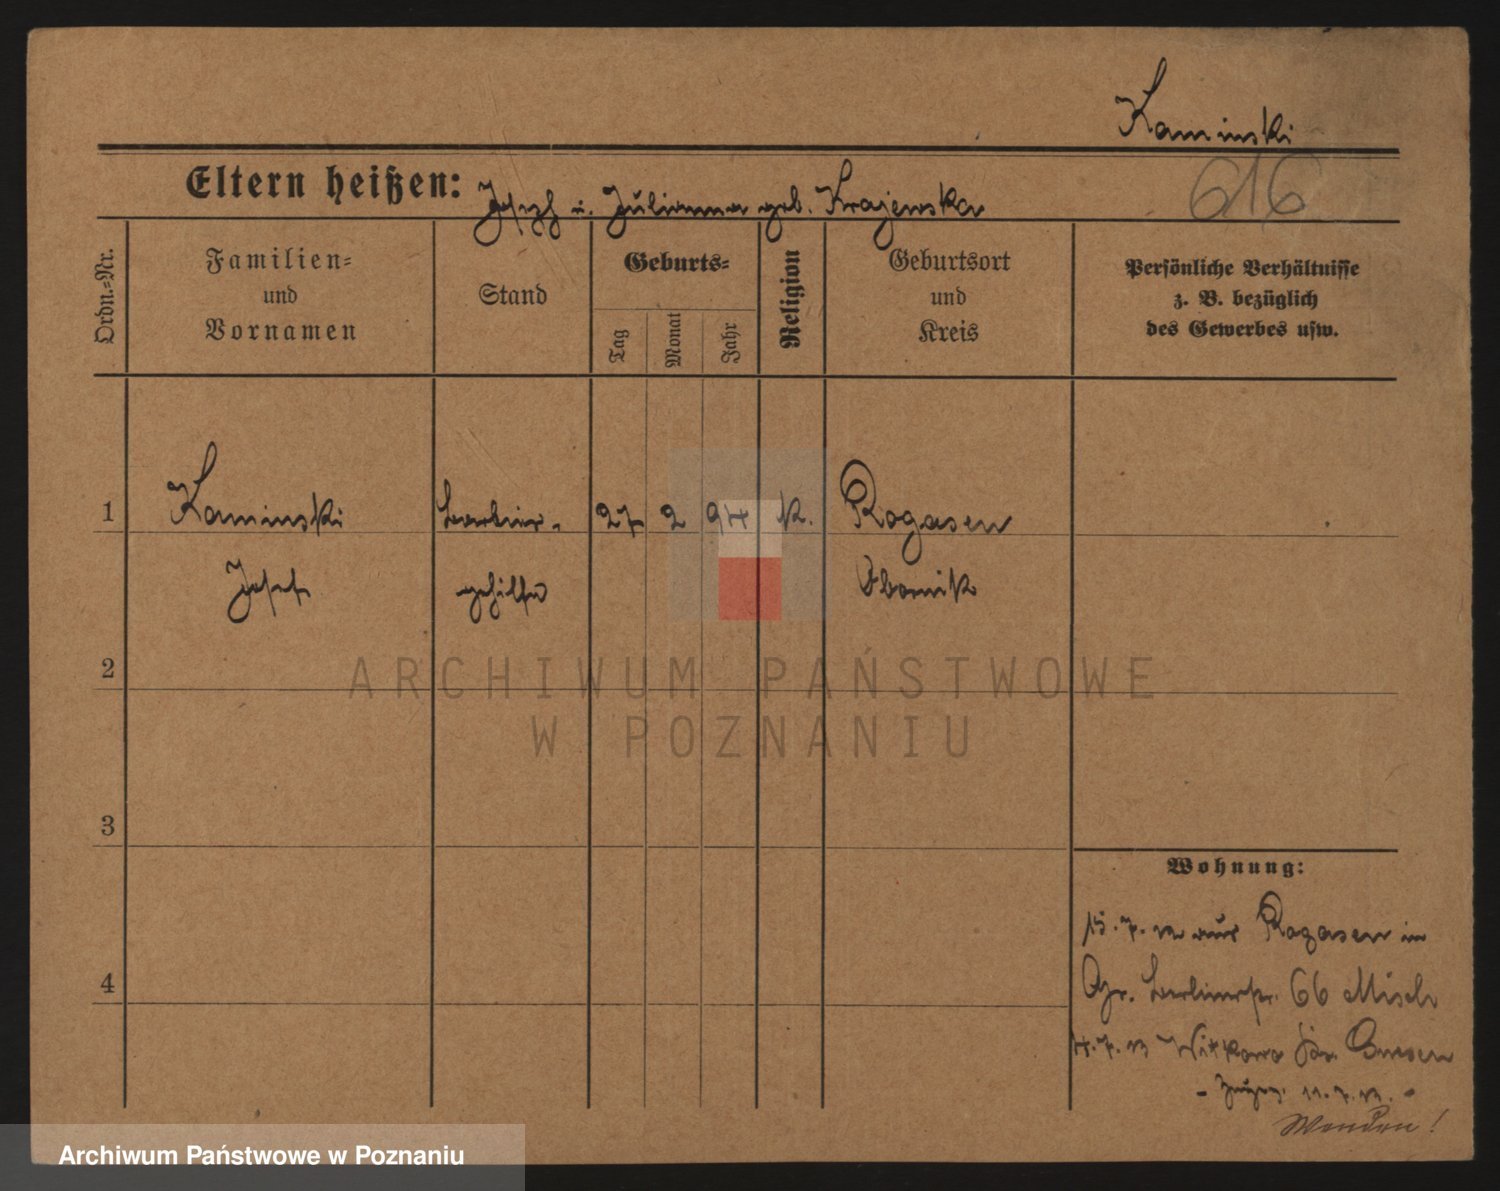 Kaminski
Eltern heißen: Josef u. Julianna geb. Krajewska
616
Ordn.-Nr.
Familien-
und
Vornamen
Stand
Geburts-
Tag
Monat
Jahr
Religion
Geburtsort
und
Kreis
Persönliche Verhältnisse
z. B. bezüglich
des Gewerbes usw.
1 Kaminski Barbier- 27 2 94 k. Rogasen
Josef gehilfe Obornik
2
ARCHIWUM PAŃSTWOWE
W POZNANIU
3
Wohnung:
15.7. aus Rogasen in
4
Berlinerstr. 66 Misch
4.7.13 Witkowo Gnesen
11.7.13.
Wenden!
Archiwum Państwowe w Poznaniu